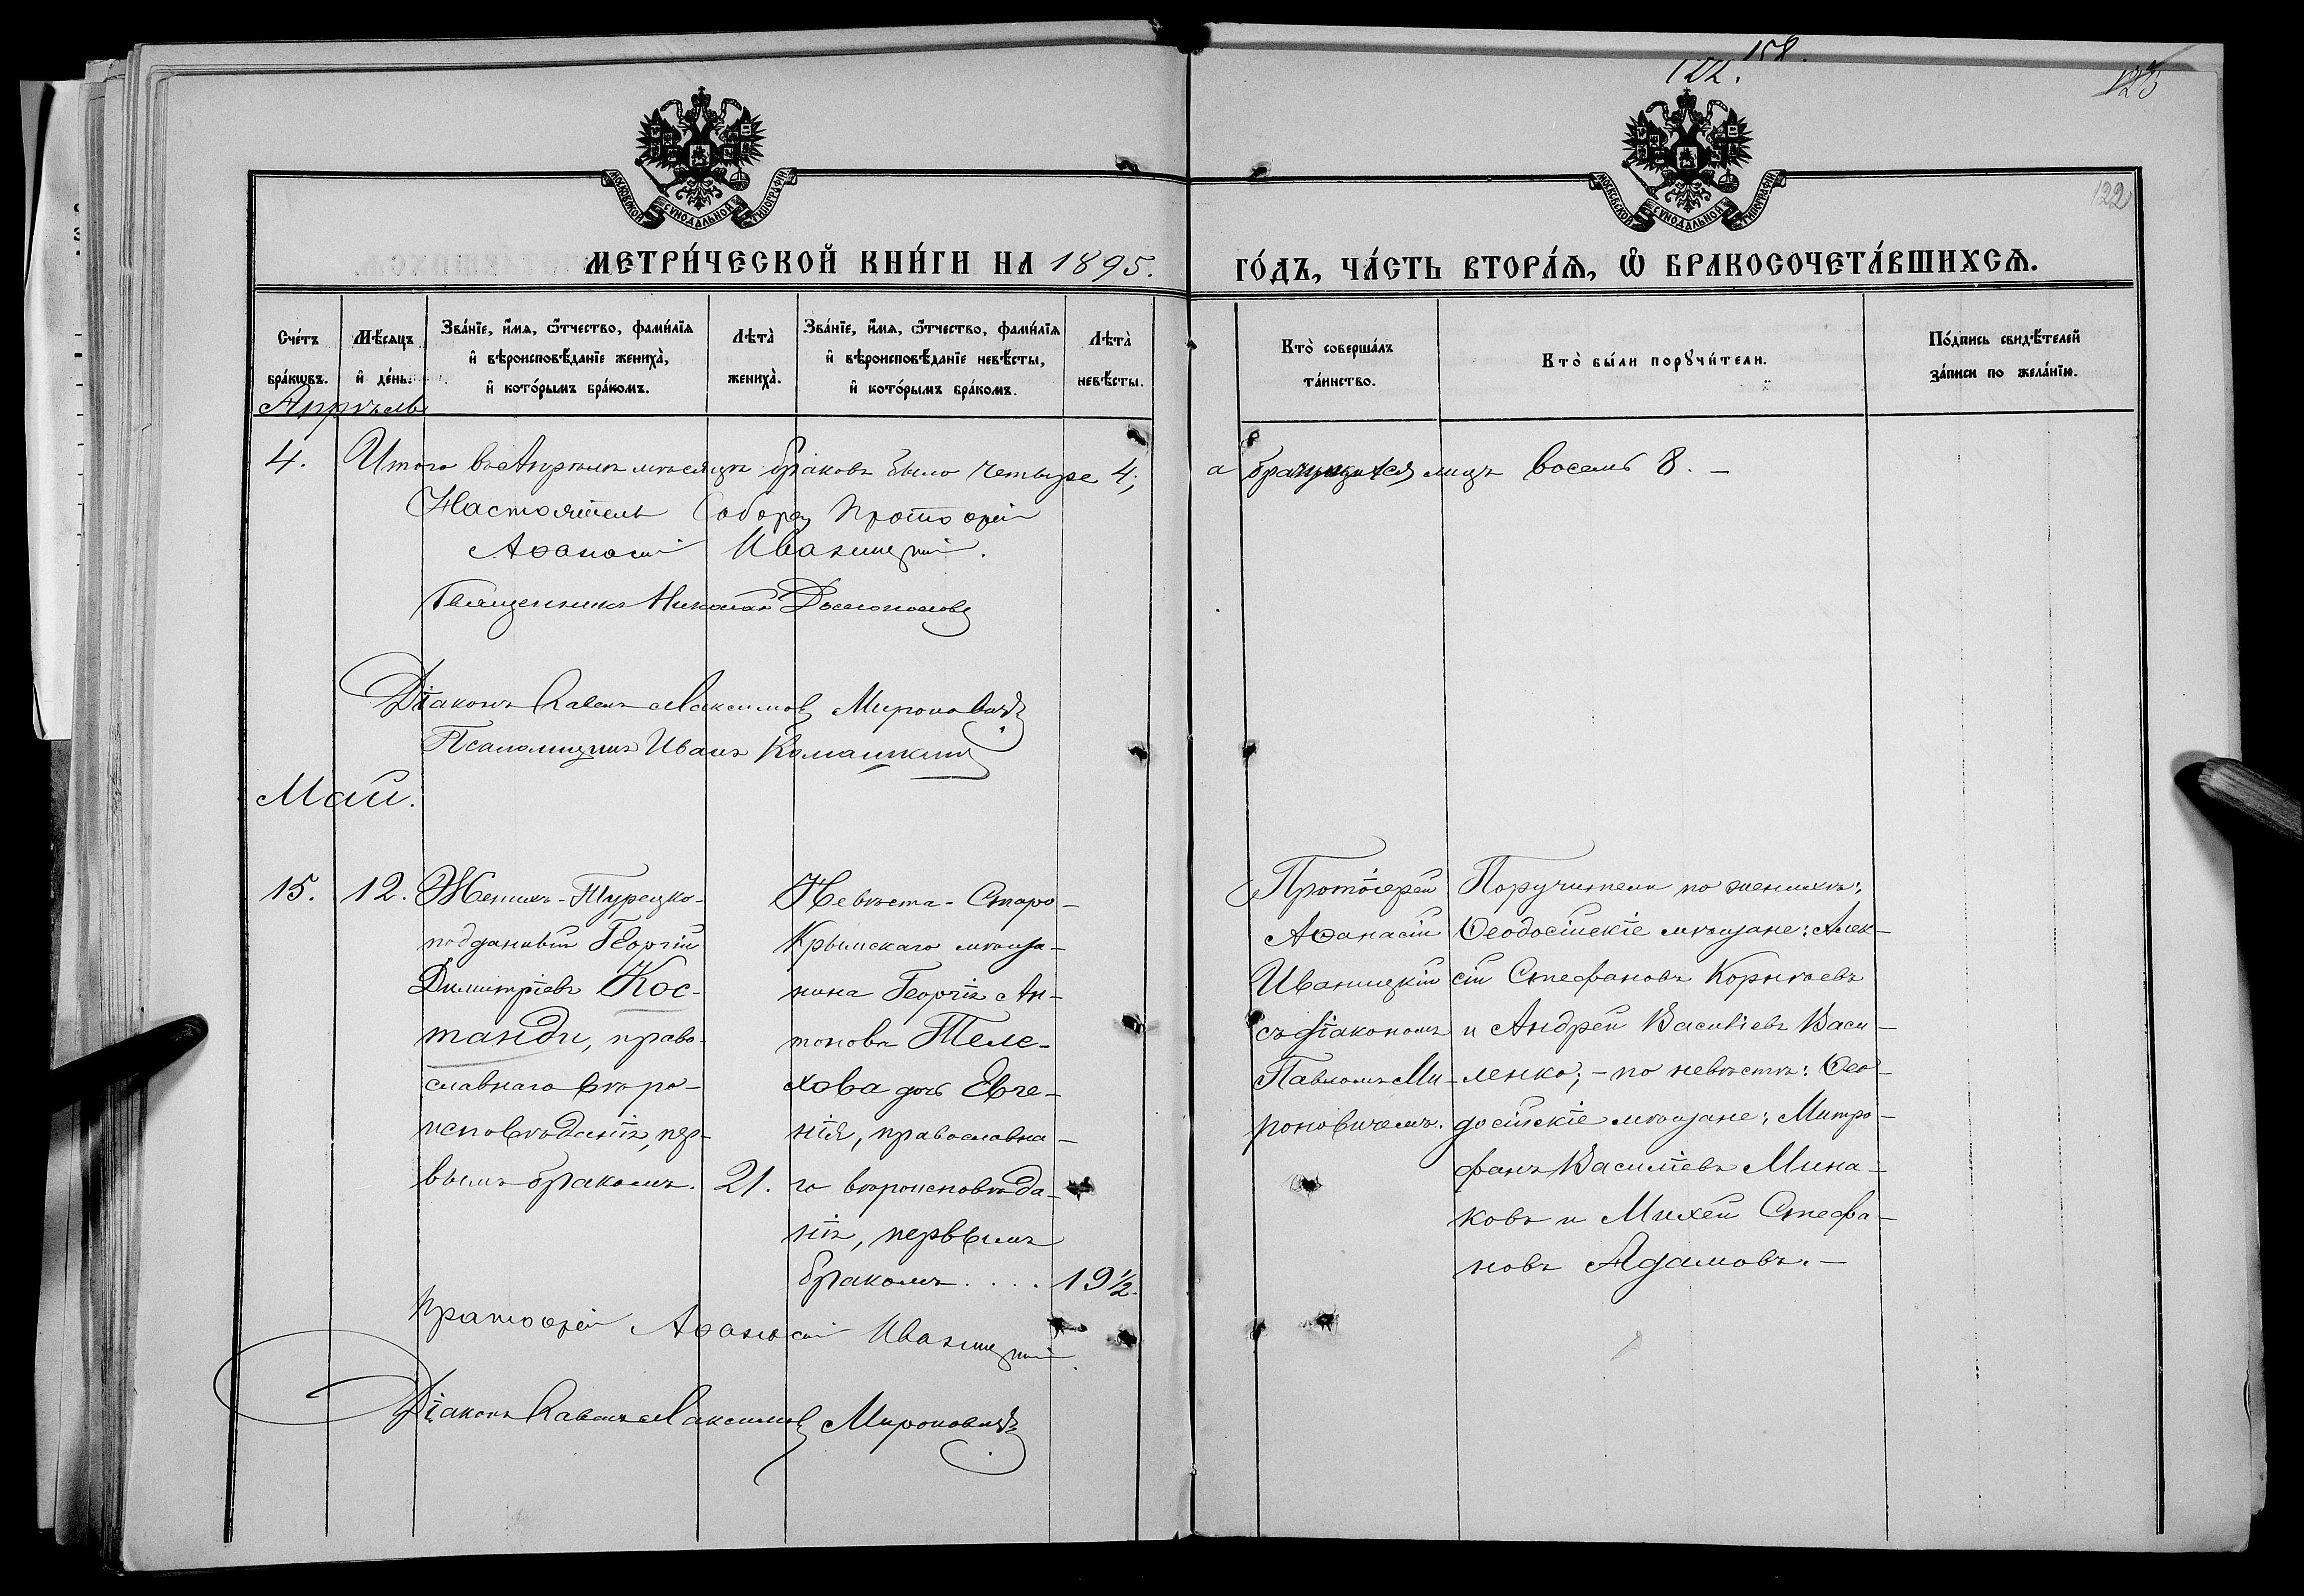 122. 158.
125
122
МОСКОВСКОЙ СѴНОДАЛЬНОЙ ТИПОГРАФІИ
МОСКОВСКОЙ СѴНОДАЛЬНОЙ ТИПОГРАФІИ
МЕТРИ́ЧЕСКОЙ КНИ́ГИ НА 1895.
ГО́ДЪ, ЧА́СТЬ ВТОРА́Ѧ, Ѽ БРАКОСОЧЕТА́ВШИХСѦ.
Сче́тъ бра́кѡвъ.
Мѣ́сяцъ и҆ де́нь.
Зва́нїе, и҆́мѧ, ѻ҆́тчество, фами́лїѧ и҆ вѣроисповѣ́данїе жениха̀, и҆ кото́рымъ бра́комъ.
Лѣта̀ жениха̀.
Зва́нїе, и҆́мѧ, ѻ҆́тчество, фами́лїѧ и҆ вѣроисповѣ́данїе невѣ́сты, и҆ кото́рымъ бра́комъ.
Лѣта̀ невѣ́сты.
Кто̀ соверша́лъ та́инство.
Кто̀ бы́ли порꙋчи́тели.
По́дпись свидѣ́телей за́писи по жела́нїю.
Апрѣль
4. Итого въ Апрѣлѣ мѣсяцѣ браковъ было четыре 4; а лицъ восемь 8. –
Настоятель Собора Протоіерей
Аѳанасій Иваницкій.
Священникъ Николай
Діаконъ Павелъ Максимовъ Мироновичъ
Псаломщикъ Иванъ
Май.
15. 12.
Женихъ - Турецко-
подданный Георгій
Димитріевъ Кос-
танди, право-
славнаго вѣро-
исповѣданія, пер-
вымъ бракомъ. 21.
Невѣста - Старо-
Крымскаго мѣща-
нина Георгія Ан-
тонова Теле-
хова дочь Евге-
нія, православна-
го вѣроисповѣда-
нія, первымъ
бракомъ . . . . 19 ½.
Протоіерей
Аѳанасій
Иваницкій
съ діакономъ
Павломъ Ми-
роновичемъ.
Поручители по женихѣ:
Ѳеодосійскіе мѣщане: Алек-
сій Стефановъ Корнѣевъ
и Андрей Василіевъ Васи-
ленко; – по невѣстѣ: Ѳео-
досійскіе мѣщане: Митро-
фанъ Василіевъ Мина-
ковъ и Михей Стефа-
новъ Адамовъ. –
Протоіерей Аѳанасій Иваницкій
Діаконъ Павелъ Максимовъ Мироновичъ